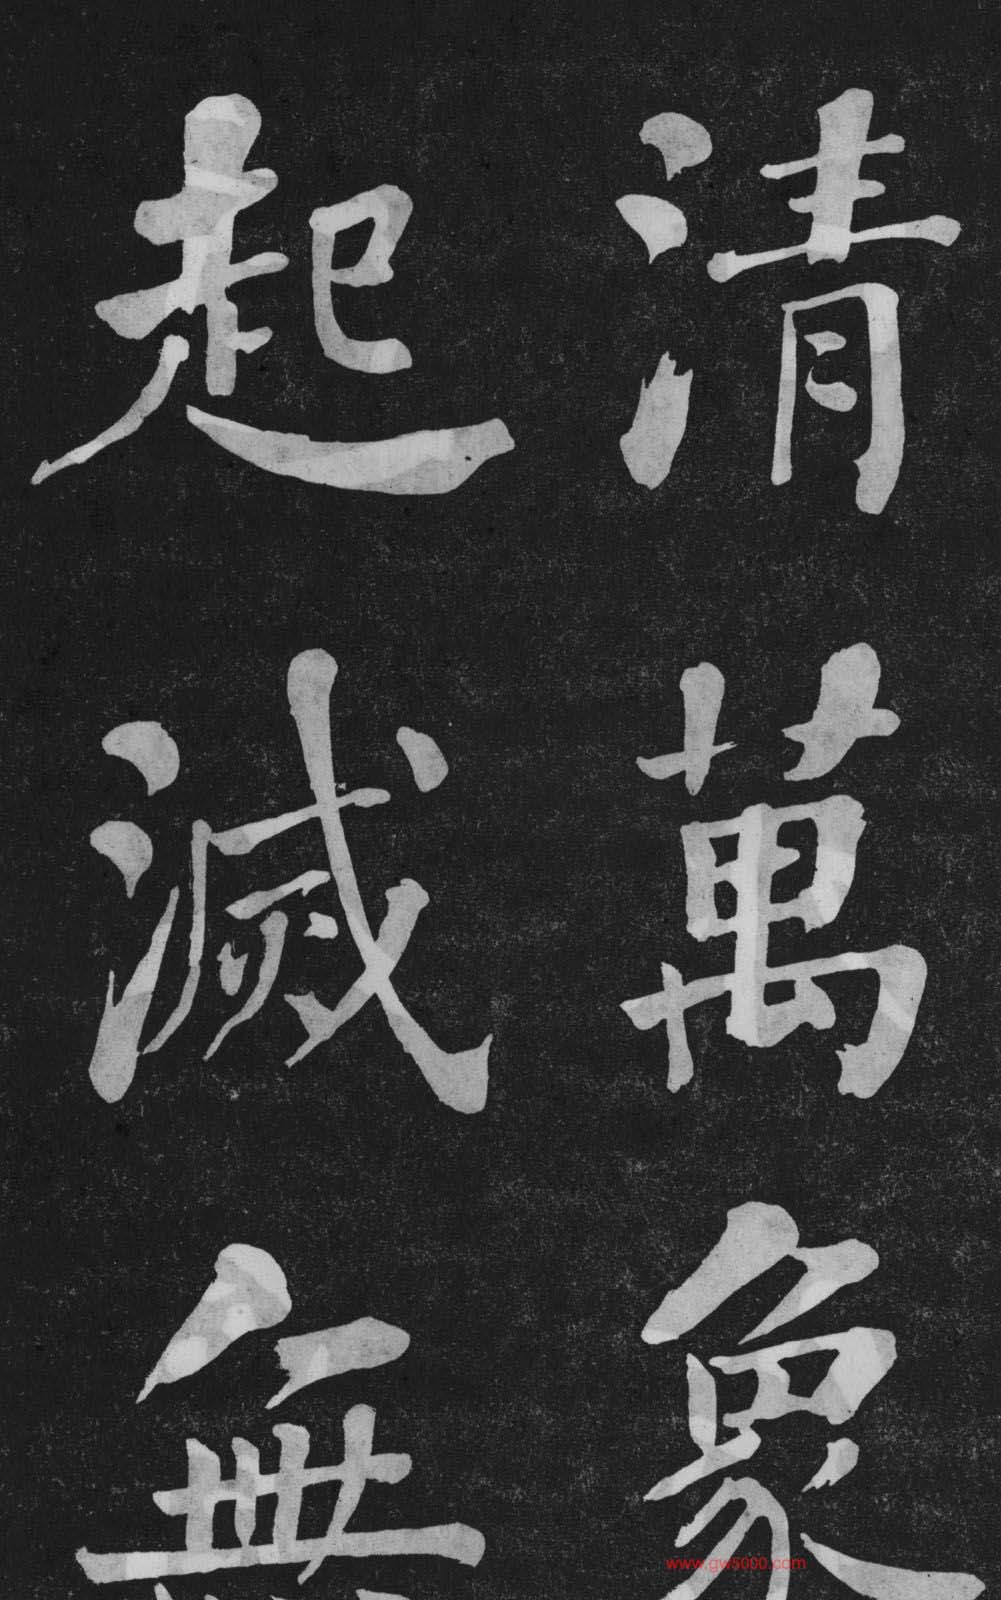 清萬象
起滅無
www.gw5000.com